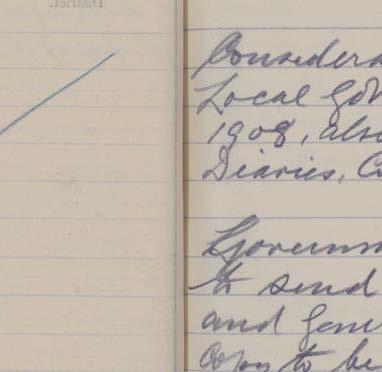 District.
Considera
Local Gov
1908, also
Diaries, C
Governm
to send
and Gene
Copy to be